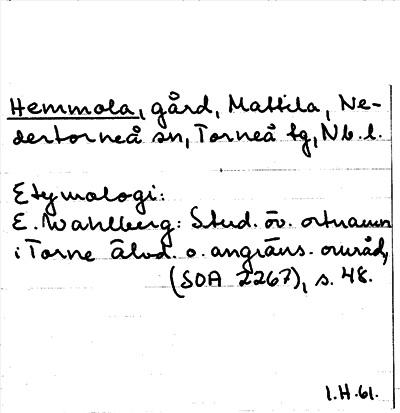 Hemmola, gård, Mattila, Ne-
dertorneå sn, Torneå tg, Nb. l.
Etymologi:
E. Wahlberg: Stud. öv. ortnamn
i Torne älvd. o. angräns. områd,
(SOA 2267), s. 48.
1.H.61.